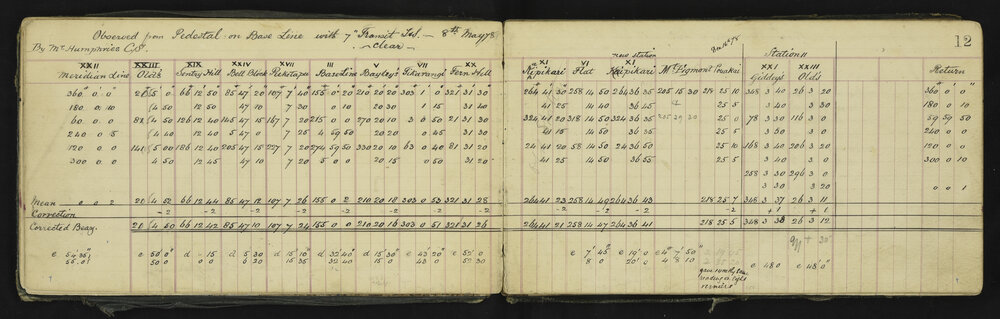 Observed from Pedestal on Base Line with 7" Transit Ins. - 8th May 78
By Mr Humphries C.S. - clear -
12
new station
Station 11
XXII XXIII XI XXIV VII III V VII XX XI VI XI XXI XXIII
Meridian Line Olds Sentry Hill Bell Block Pukotapu Base Line Bayleys Tikorangi Fern Hill Kipikari Flat Kipikari Mt Egmont Pouakai Giddeys Olds Return
360° 0' 0" 21 5 0 66 12 50 85 47 20 107 7 40 155 0 20 210 20 20 303 0 40 321 31 30 264 41 30 258 14 50 264 36 35 205 15 30 218 25 10 348 3 40 26 3 20 360 0 0
180 0 10 4 50 12 50 47 10 7 30 0 10 20 30 1 15 31 40 41 25 14 40 36 45 25 0 3 40 3 30 180 0 10
60 0 0 82 4 50 126 12 40 145 47 15 167 7 20 215 0 0 270 20 10 3 0 50 21 31 30 324 41 20 318 14 50 324 36 35 25 0 78 3 30 116 3 0 59 59 50
240 0 15 4 40 12 40 47 0 7 25 4 59 50 20 20 0 45 31 30 41 15 14 50 36 35 25 5 3 30 3 0 240 0 0
120 0 0 141 5 00 186 12 40 205 47 15 227 7 20 274 59 50 330 20 10 63 0 40 81 31 20 24 41 20 58 14 50 24 36 50 25 10 168 3 40 206 3 20 120 0 0
300 0 0 4 50 12 45 47 10 7 20 5 0 0 20 15 0 50 31 20 41 25 14 50 36 55 25 5 3 40 3 0 300 0 10
258 3 30 296 3 0
3 30 3 20 0 0 1
Mean 0 0 2 21 4 52 66 12 44 85 47 12 107 7 26 155 0 2 210 20 18 303 0 53 321 31 28 264 41 23 258 14 48 264 36 43 218 25 7 348 3 37 26 3 11
Correction -2 -2 -2 -2 -2 -2 -2 -2 -2 -2 +1 +1
Corrected Bearg. 21 4 50 66 12 42 85 47 10 107 7 24 155 0 0 210 20 16 303 0 51 321 31 26 264 41 21 258 14 47 264 36 41 218 25 5 348 3 38 26 3 12
e 54' 35" e 50' 0" d 15 d 5 30 d 15' 10" d 32' 40" d 15' 30" e 43' 20" e 52' 0" e 7' 45" e 19' 0 e 4° 7' 50" e 48 0 e 48' 0"
55 0 50 0 0 0 5 20 15 30 32 40 15 0 43 30 52 30 8 0 20' 0 4 8 10